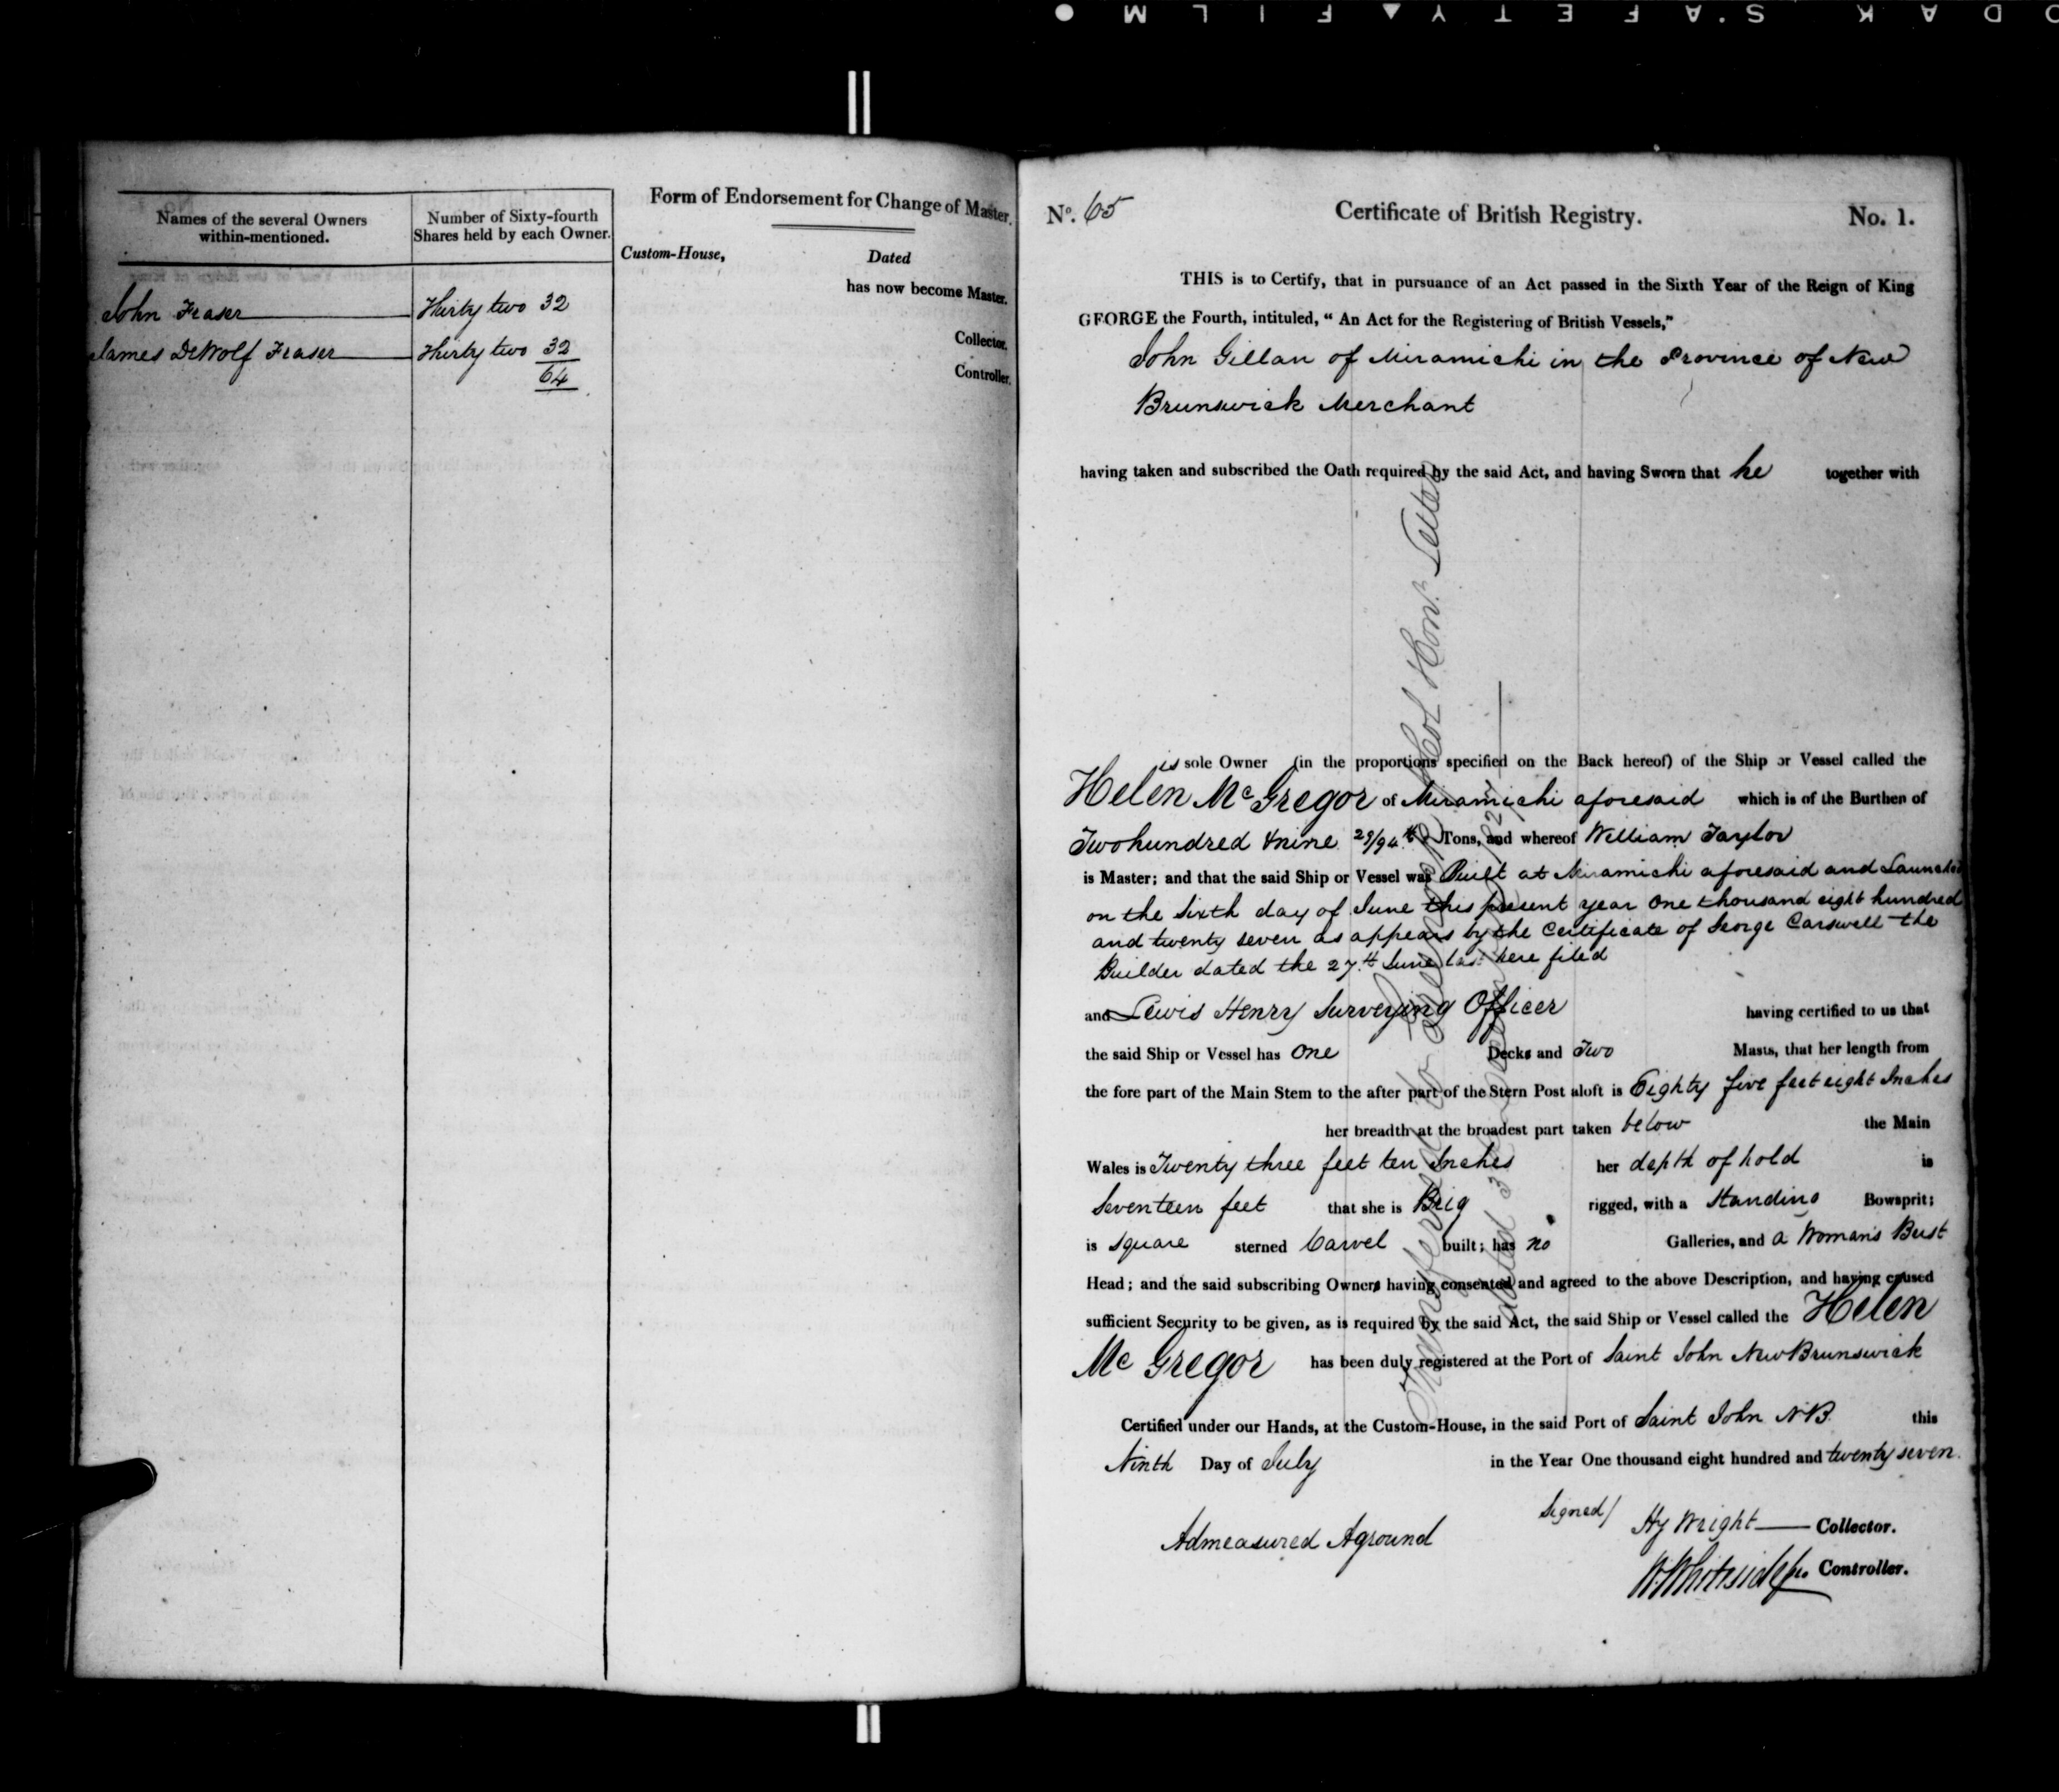 KODAK SAFETY FILM
Names of the several Owners within-mentioned.
Number of Sixty-fourth Shares held by each Owner.
John Fraser Thirty two 32
James DeWolf Fraser Thirty two 32
64
Form of Endorsement for Change of Master.
Custom-House, Dated
has now become Master.
Collector.
Controller.
No. 65 Certificate of British Registry. No. 1.
THIS is to Certify, that in pursuance of an Act passed in the Sixth Year of the Reign of King
GEORGE the Fourth, intituled, “ An Act for the Registering of British Vessels,”
John Gillan of Miramichi in the Province of New
Brunswick Merchant
having taken and subscribed the Oath required by the said Act, and having Sworn that he together with
is sole Owner (in the proportions specified on the Back hereof) of the Ship or Vessel called the
Helen Mc Gregor of Miramichi aforesaid which is of the Burthen of
Two hundred & nine 29/94th Tons, and whereof William Taylor
is Master; and that the said Ship or Vessel was Built at Miramichi aforesaid and Launched
on the Sixth day of June this present year One thousand eight hundred
and twenty seven as appears by the Certificate of George Carswell the
Builder dated the 27th June last here filed
and Lewis Henry Surveying Officer having certified to us that
the said Ship or Vessel has One Decks and Two Masts, that her length from
the fore part of the Main Stem to the after part of the Stern Post aloft is Eighty five feet eight Inches
her breadth at the broadest part taken below the Main
Wales is Twenty three feet ten Inches her depth of hold is
Seventeen feet that she is Brig rigged, with a Standing Bowsprit;
is Square sterned Carvel built; has no Galleries, and a Woman's Bust
Head; and the said subscribing Owners having consented and agreed to the above Description, and having caused
sufficient Security to be given, as is required by the said Act, the said Ship or Vessel called the Helen
Mc Gregor has been duly registered at the Port of Saint John New Brunswick
Certified under our Hands, at the Custom-House, in the said Port of Saint John N.B. this
Ninth Day of July in the Year One thousand eight hundred and twenty seven.
Signed/ Hy Wright Collector.
Admeasured Aground
W Whiteside Controller.
Transferred to
Letter
dated 3